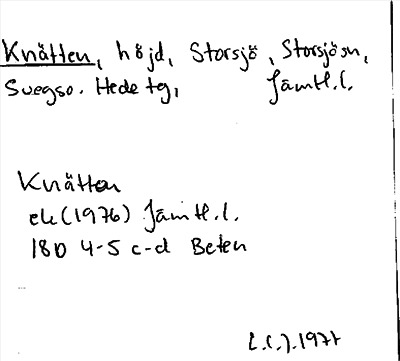 Knätten, höjd, Storsjö, Storsjö sn,
Svegs o. Hede tg, Jämtl. l.
Knätten
ek (1976) Jämtl. l.
18D 4-5 c-d Beten
1971